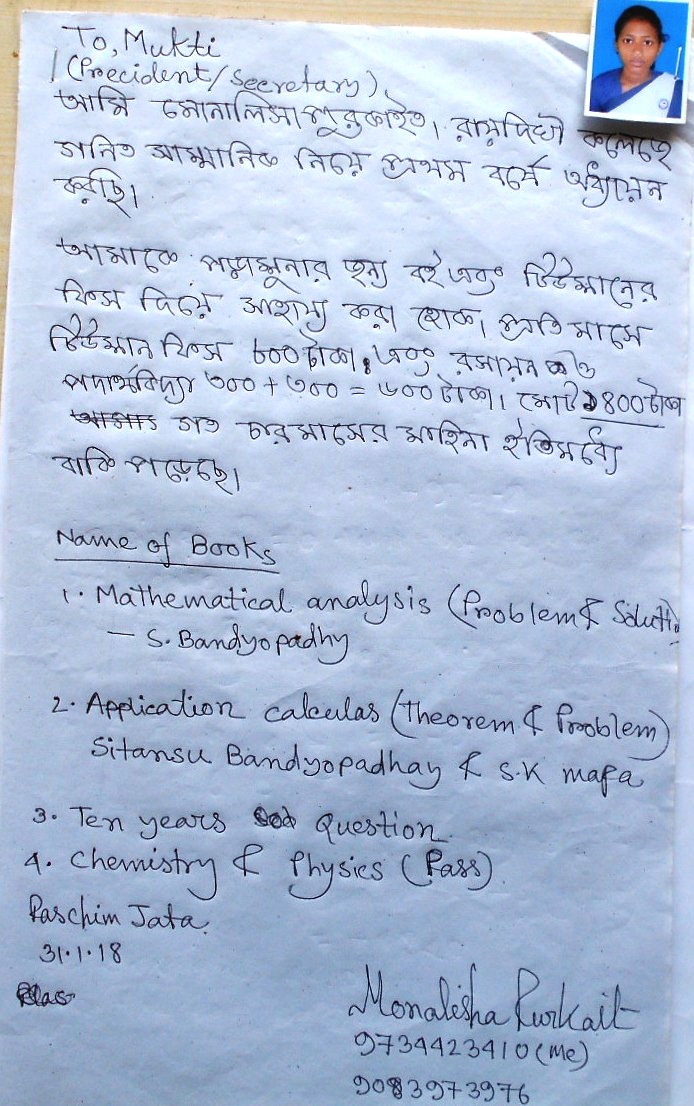 To, Mukti
(Precident/Secretary),
আমি মোনালিসা পুরকাইত। রায়দিঘী কলেজে
গনিত সাম্মানিক নিয়ে প্রথম বর্ষে অধ্যয়ন
করছি।
আমাকে পড়াশুনার জন্য বই এবং টিউশানের
ফিস দিয়ে সাহায্য করা হোক। প্রতি মাসে
টিউশান ফিস ৮০০ টাকা। এবং রসায়ন ও
পদার্থবিদ্যা ৩০০ + ৩০০ = ৬০০ টাকা। মোট ১৪০০ টাকা
গত চার মাসের মাহিনা ইতিমধ্যে
বাকি পড়েছে।
Name of Books
1. Mathematical analysis (Problem & Solutio
— S. Bandyopadhy
2. Application calculas (Theorem & Problem)
Sitansu Bandyopadhay & S.K mapa
3. Ten years Question.
4. Chemistry & Physics (Pass)
Paschim Jata.
31.1.18
Monalisha Purkait
9734423410 (me)
9083973976